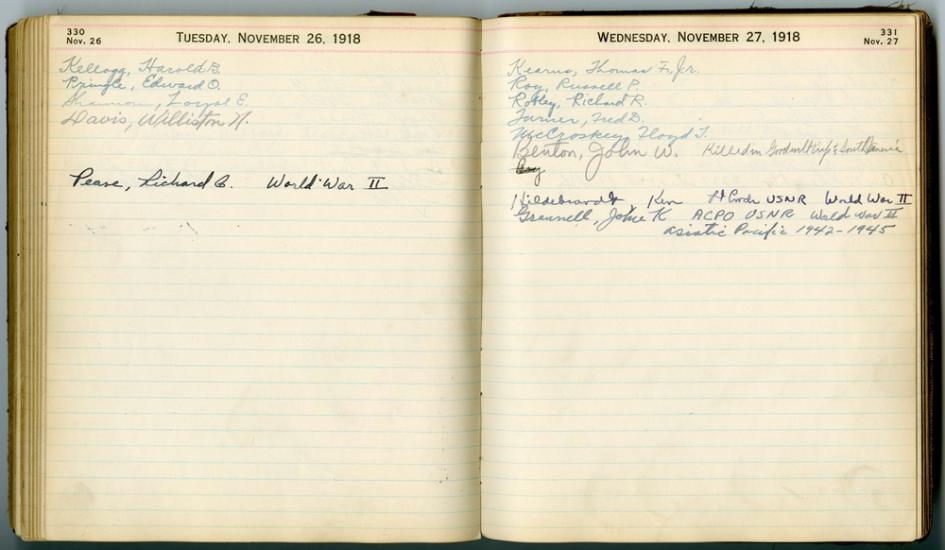 330
Nov. 26
TUESDAY, NOVEMBER 26, 1918
Kellogg, Harold B.
Pringle, Edward O.
Shannon, Loyal E.
Davis, Williston N.
Pease, Richard C. World War II
WEDNESDAY, NOVEMBER 27, 1918
331
Nov. 27
Kearns, Thomas F., Jr.
Roy, Russell P.
Richard R.
Turner, Fred D.
McCroskey, Floyd T.
Benton, John W. Killed in Goodwill trip to South America
Hildebrandt, Ken Lt Comdr USNR World War II
Grannell, K ACPO USNR World War II
Asiatic Pacific 1942-1945